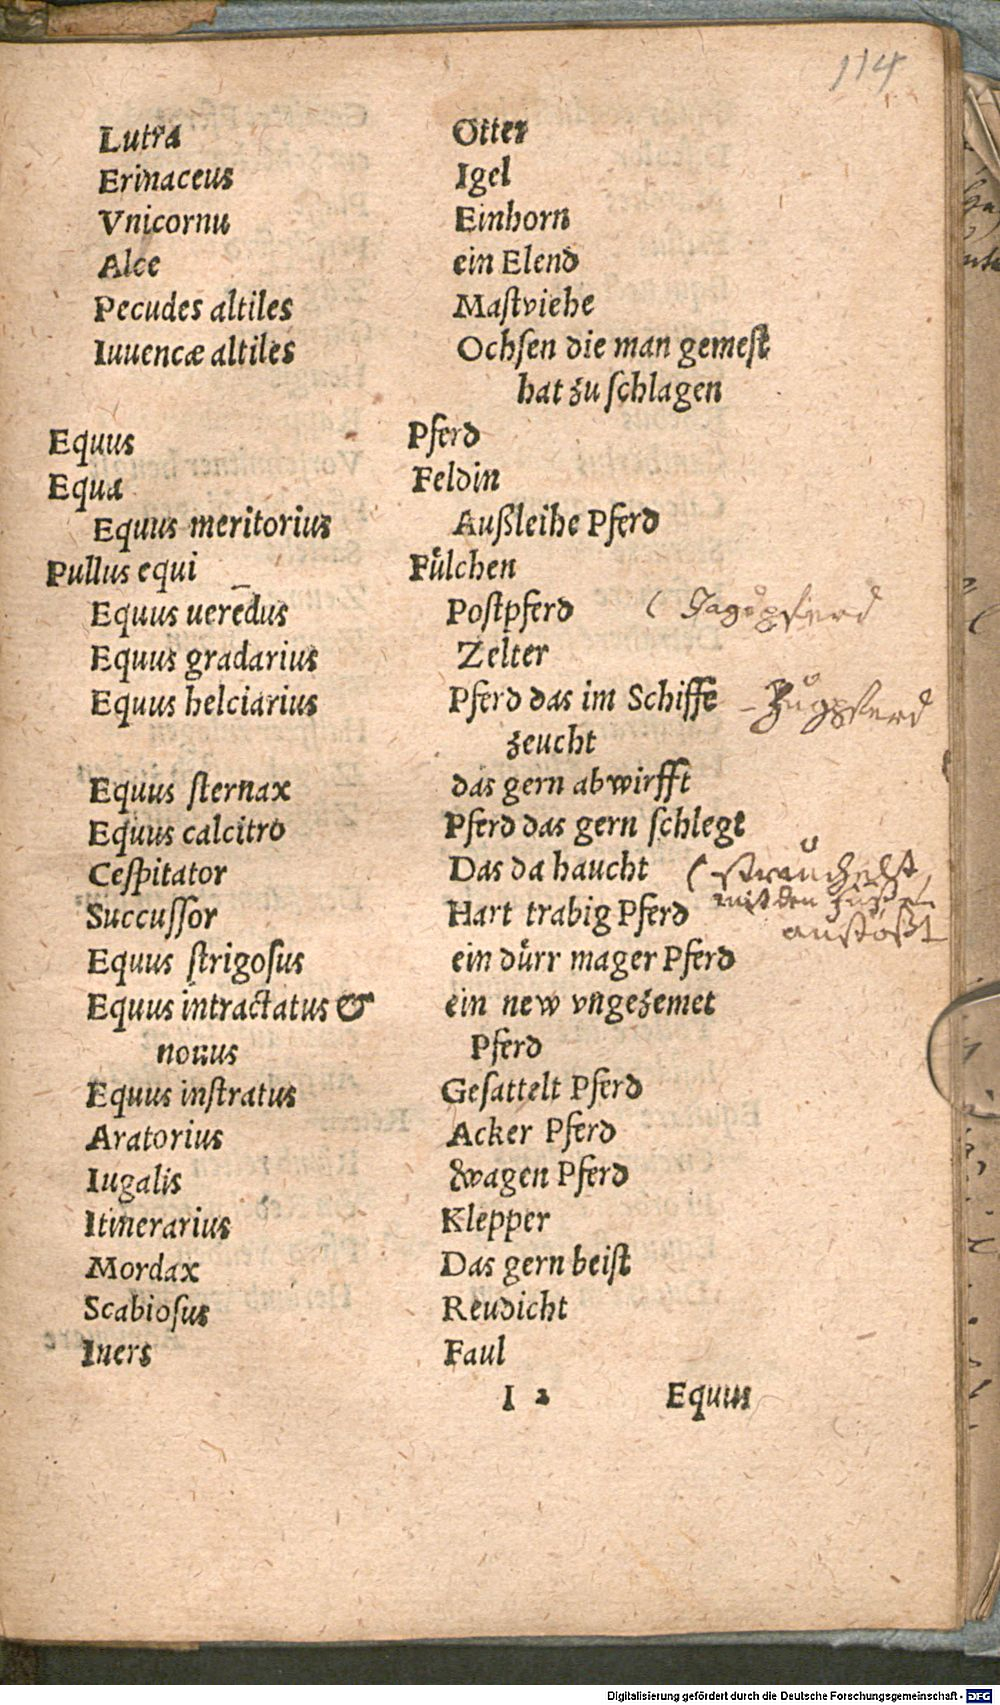 114
Lutra Otter
Erinaceus Igel
Vnicornu Einhorn
Alce ein Elend
Pecudes altiles Maſtviehe
Iuuencæ altiles Ochſen die man gemeſt
hat zu ſchlagen
Equus Pferd
Equa Feldin
Equus meritorius Außleihe Pferd
Pullus equi Fuͤlchen
Equus ueredus Poſtpferd ( Jagdpferd
Equus gradarius Zelter
Equus helciarius Pferd das im Schiffe – Zugpferd
zeucht
Equus ſternax das gern abwirfft
Equus calcitro Pferd das gern ſchlegt
Ceſpitator Das da haucht ( strauchelst,
mit den Füßen
Succuſſor Hart trabig Pferd anstößt
Equus ſtrigoſus ein duͤrr mager Pferd
Equus intractatus & ein new vngezemet
nouus Pferd
Equus inſtratus Geſattelt Pferd
Aratorius Acker Pferd
Iugalis wagen Pferd
Itinerarius Klepper
Mordax Das gern beiſt
Scabioſus Reudicht
Iners Faul
I 2 Equus
Digitalisierung gefördert durch die Deutsche Forschungsgemeinschaft - DFG